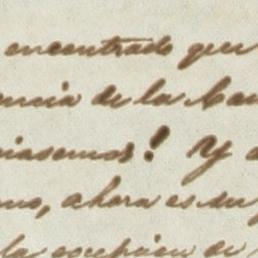 encontrado que
encia de la Cau
iasemos! Y a
no, ahora es su
la escepcion de